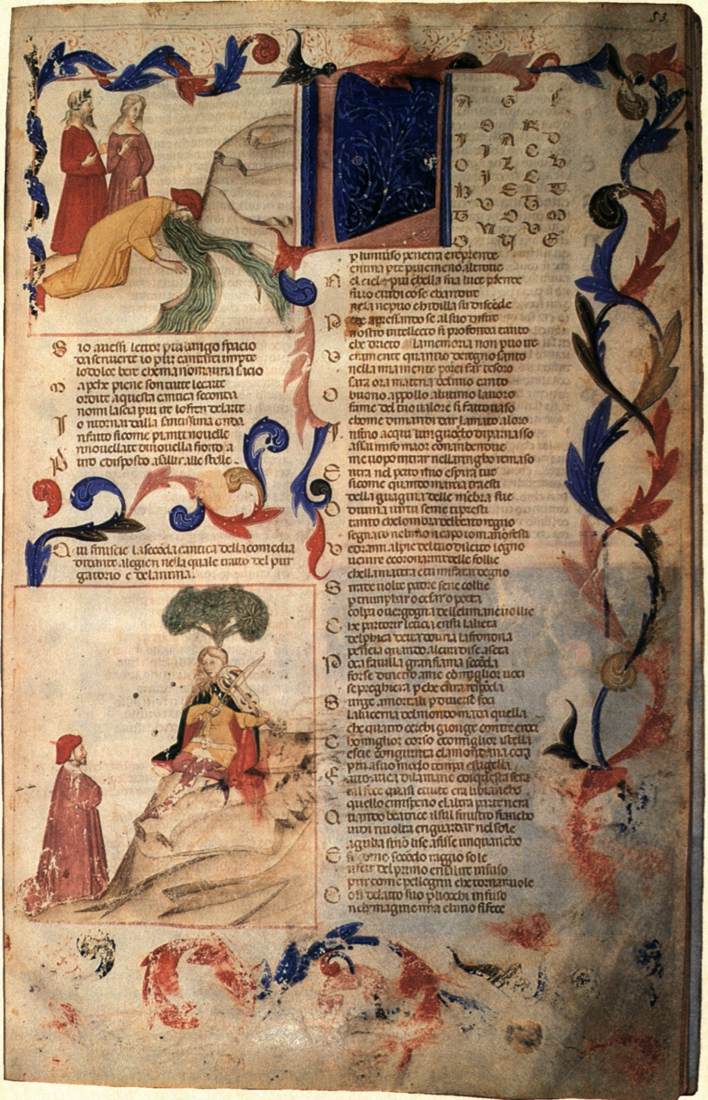 53
S io auessi lettor piu lungo spacio
da scriuere io pur cantarei in parte
lo dolce ber che mai non mauria sacio
M a perche piene son tutte le carte
ordite a questa cantica seconda
non mi lascia piu ire lo fren dellarte
I o ritornai dalla sanctissima onda
rifatto si come piante nouelle
rinouellate di nouella fronda
P uro e disposto a salir alle stelle
Qui finiscie la secoda cantica della comedia
di dante alegieri nella quale tratto del pur
gatorio e de lanima
p luniuerso penetra e risprende
in una pte piu e meno altroue
N el ciel che piu della sua luce prende
fui io e uidi cose che ridire
ne sa ne puo chi di la su discede
P che apressando se al suo disire
nostro intelletto si profonda tanto
che dietro la memoria non puo ire
V eramente quanto del regno santo
nella mia mente potei far tesoro
sara ora matera del mio canto
O buono appollo alultimo lauoro
fame del tuo ualore si fatto uaso
chome dimandi dar lamato aloro
I nfino acqui lun giogho di parnasso
assai mi fu ma or con amendue
me uopo intrar nellaringho rimaso
E ntra nel petto mio e spira tue
si come quando marsia traesti
della guagina delle mebra sue
O diuina uirtu se mi ti presti
tanto che lombra del beato regno
segnata nel mio capo io manifesti
V edrami al pie del tuo dilecto legno
uenire e coronarmi delle foglie
che la matera e tu mi farai degno
S i rade uolte padre se ne coglie
p triunphar o cesar o poeta
colpa e uergogna dellumane uoglie
C he partorir letitia in su la lieta
delphica deita douria la fronda
peneia quando alcun di se aseta
P oca fauilla gran fiama seconda
forse diretro a me co miglior uoci
se preghera p che cirra risponda
S urge amortali p diuerse foci
la lucerna del mondo ma da quella
che quatro cerchi giunge con tre croci
C on miglior corso e con miglior stella
escie congiunta e la mondana cera
piu a suo modo tempra e sugella
F atto auea di la mane e di qua sera
tal foce quasi e tutto era la biancho
quello emisperio e laltra parte nera
Q uando beatrice in sul sinistro fiancho
uidi riuolta e riguardar nel sole
aguglia si non li se affisse unquancho
E si come secodo raggio sole
uscir del primo e risalire in suso
pur come pellegrin che tornar uole
C osi dellatto suo p li occhi infuso
nell imagine mia el mio si fece